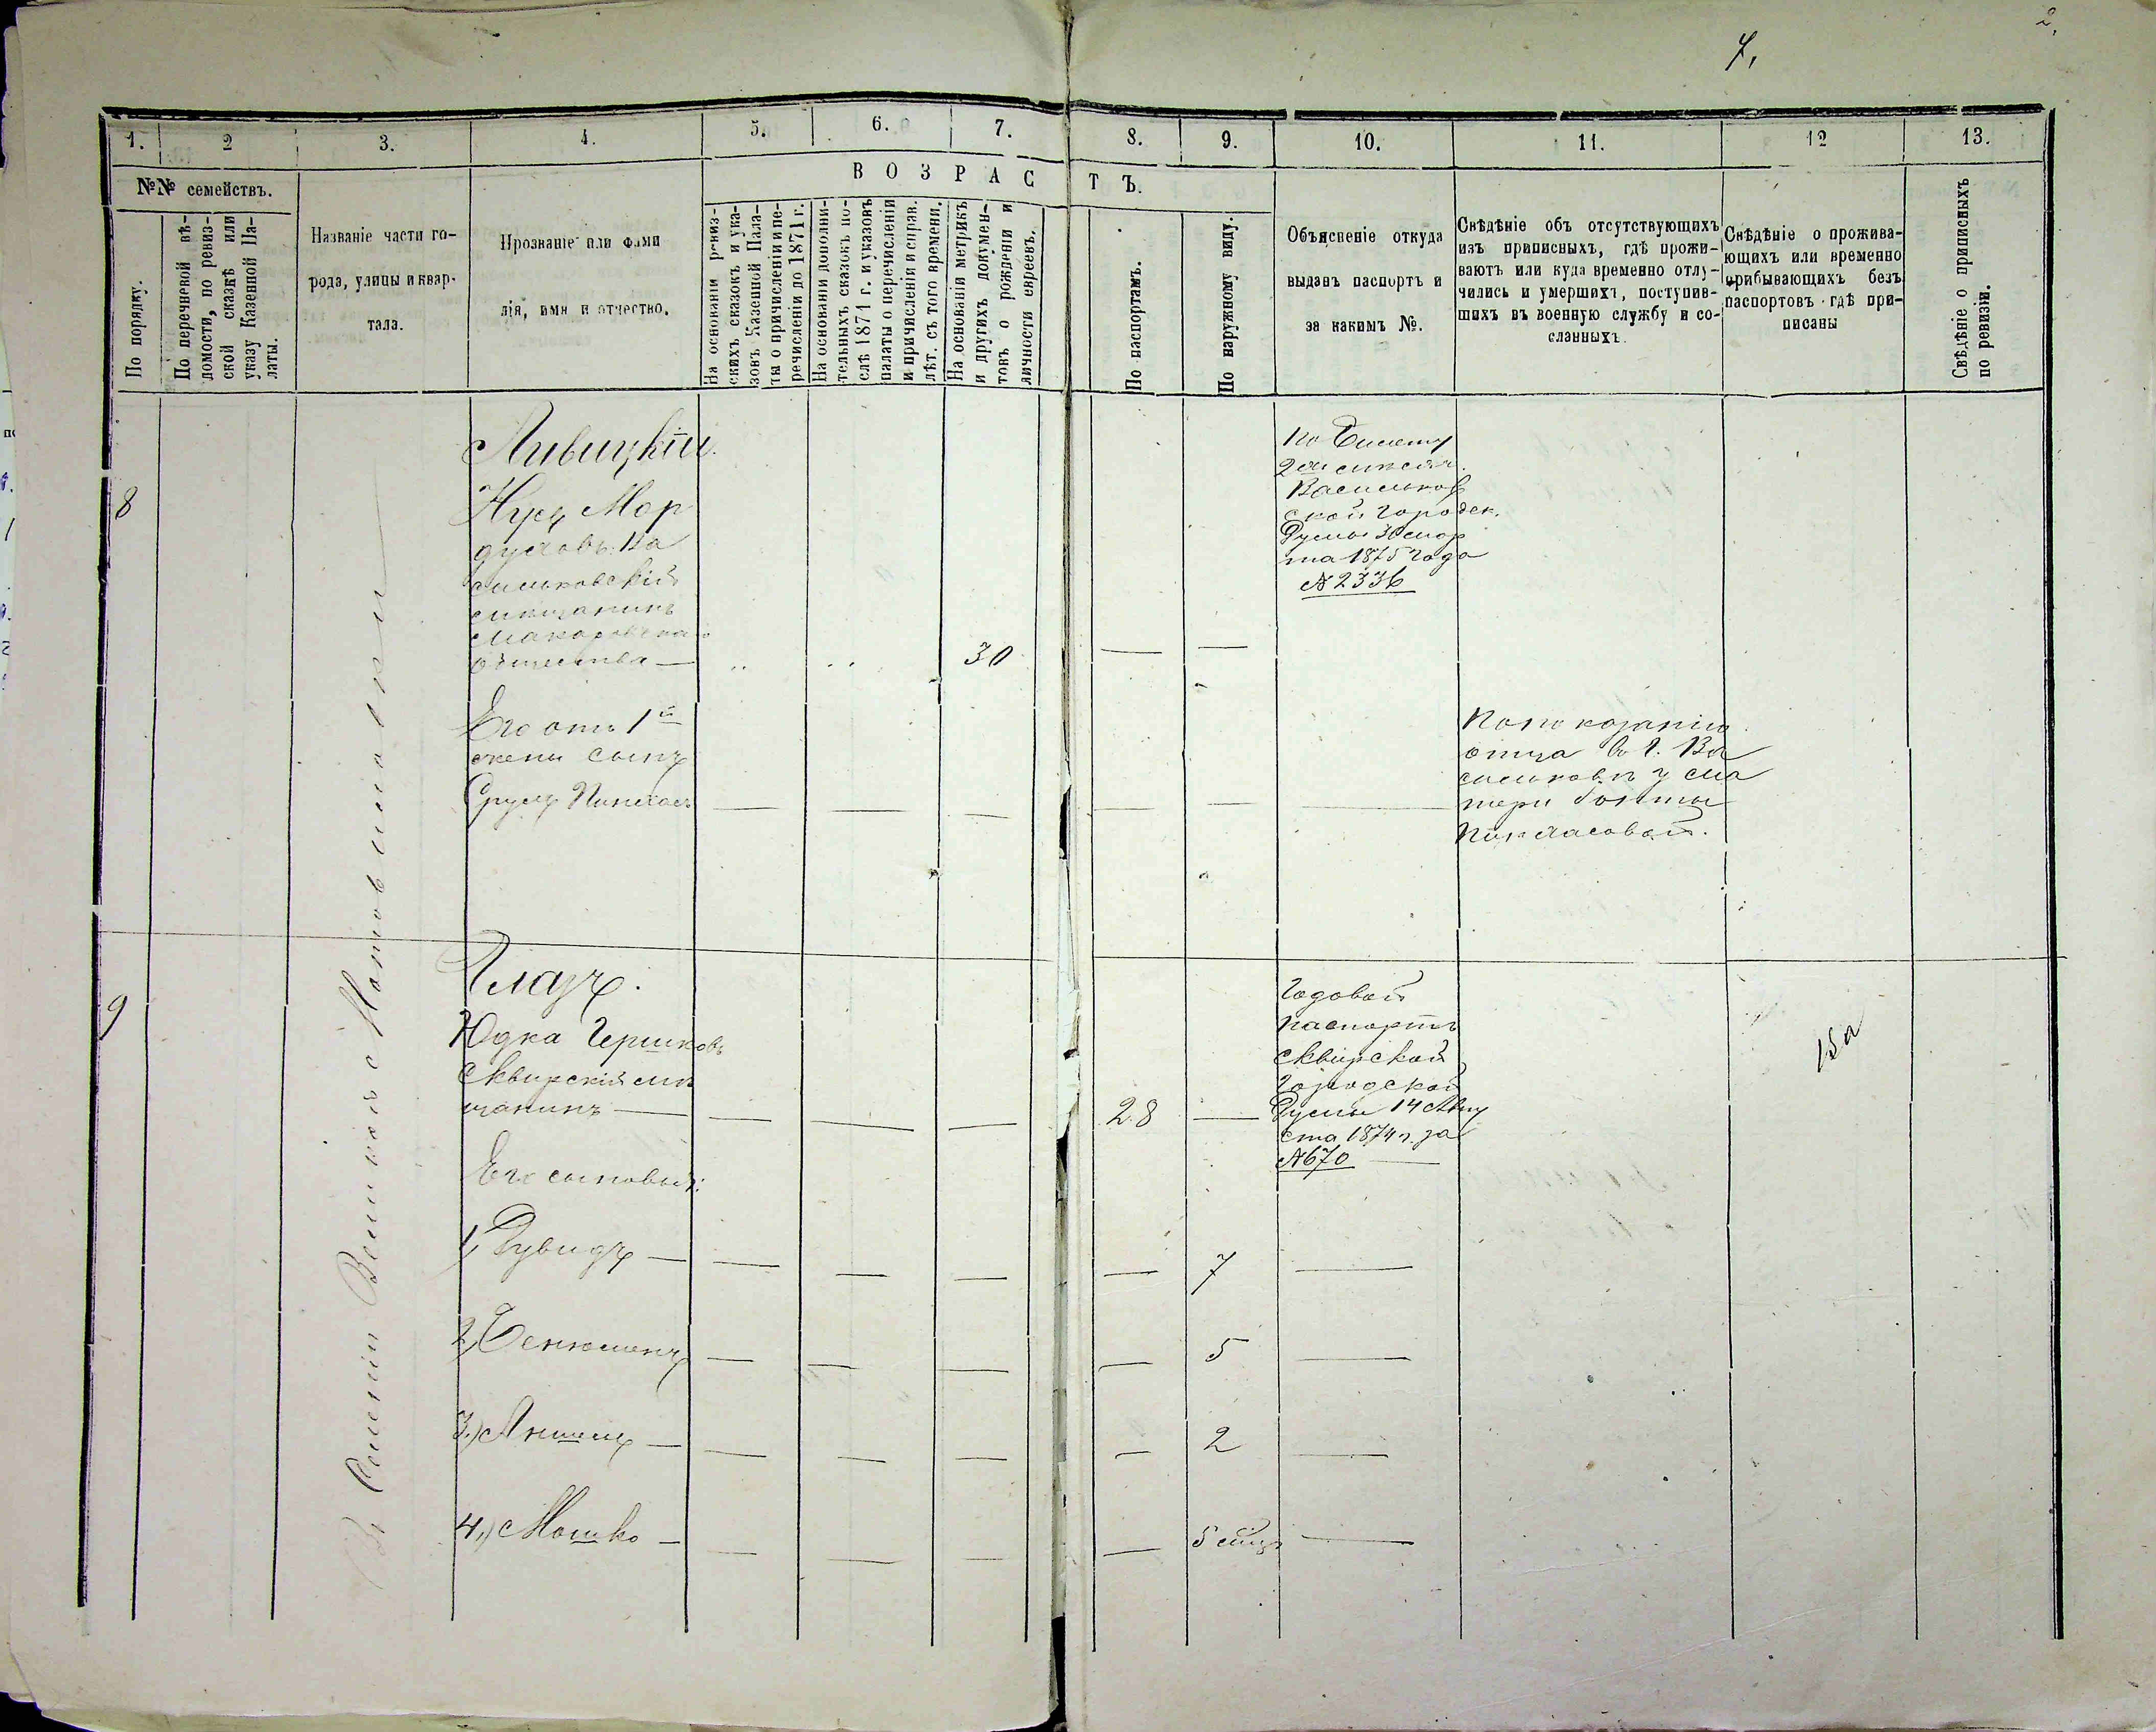 2.
7.
1. 2 3. 4. 5. 6. 7. 8. 9. 10. 11. 12 13.
№№ семействъ.
ВОЗРАСТЪ.
По порядку.
По перечневой вѣ-
домости, по ревиз-
ской сказкѣ или
указу Казенной Па-
латы.
Названіе части го-
рода, улицы и квар-
тала.
Прозваніе или фами
лія, имя и отчество.
На основаніи ревиз-
скихъ сказокъ и ука-
зовъ Казенной Пала-
ты о причисленіи и пе-
речисленіи до 1871 г.
На основаніи дополни-
тельныхъ сказокъ по-
слѣ 1871 г. и указовъ
палаты о перечисленіи
и причисленіи и справ.
лѣт. съ того времени.
На основаніи метрикъ
и другихъ докумен-
товъ о рожденіи и
личности евреевъ.
По паспортамъ.
По наружному виду.
Объясненіе откуда
выданъ паспортъ и
за какимъ №.
Свѣдѣніе объ отсутствующихъ
изъ приписныхъ, гдѣ прожи-
ваютъ или куда временно отлу-
чились и умершихъ, поступив-
шихъ въ военную службу и со-
сланныхъ.
Свѣдѣніе о прожива-
ющихъ или временно
прибывающихъ безъ
паспортовъ гдѣ при-
писаны
Свѣдѣніе о приписныхъ
по ревизіи.
Въ Селеніи Великой Мотовиловки
8
Ливицкій.
Нусъ Мор
духовъ Ва
сильковскій
мѣщанинъ
Макаровска
общества —
30
По билету
2хъ мѣсяч.
Васильков
ской Городск.
Думы 30 мар
та 1875 года
№ 2336
Его отъ 1й
жены сынъ
Сруль Пинхас
По показанію
отца въ г. Ва
сильковѣ у ма
тери
Пинхасовой.
9
Глазъ.
Юдка Гершковъ
Сквирскій мѣ
щанинъ —
28
Годовой
паспортъ
Сквирской
Городской
Думы 14 Авгу
ста 1874 г. за
№ 670
15а
Его сыновья:
1, Дувидъ — 7
2, Бенюменъ 5
3,) Аншель — 2
4,) Мошко — 5 мѣц.